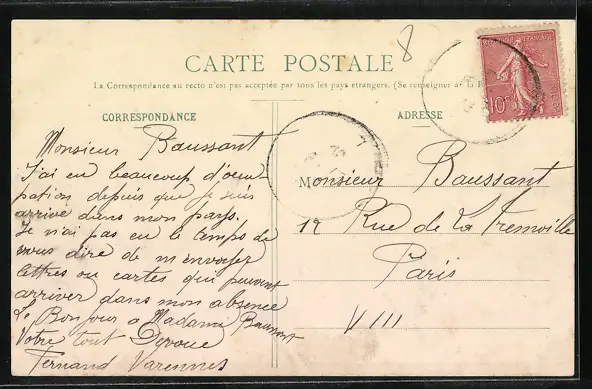 8
CARTE POSTALE
La Correspondance au recto n'est pas acceptée par tous les pays étrangers. (Se renseigner à la
CORRESPONDANCE
Monsieur Baussant
J'ai eu beaucoup d'ocu
pation depuis que je suis
arrive dans mon pays.
Je n'ai pas eu le temps de
vous dire de m'envoyer
lettres ou cartes qui peuvent
arriver dans mon absence
Le Bonjour a Madame Baussant
Votre tout Devoue
Fernand Varennes
ADRESSE
Monsieur Baussant
12 Rue de La Tremoille
Paris
VIII
REPUBLIQUE FRANÇAISE
10c